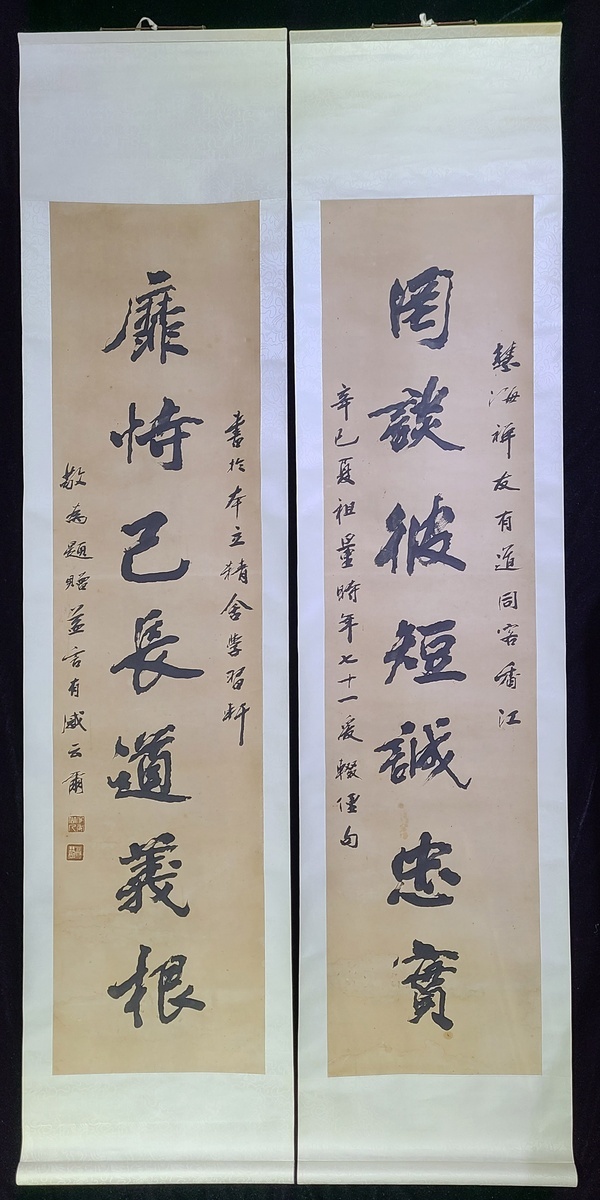 慧海祥友有道同客香江
罔談彼短誠忠實
辛巳夏祖量時年七十一爰輟俚句
書於本立精舍學習軒
靡恃己長道義根
敬為題贈並言有感云爾